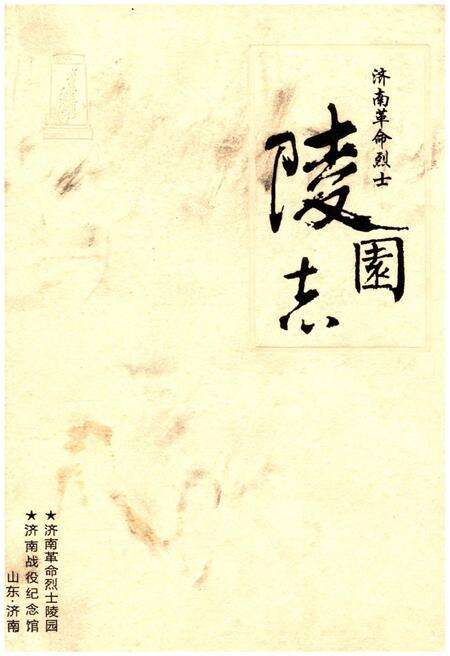 济南革命烈士
陵園志
★济南革命烈士陵园
★济南战役纪念馆
山东·济南